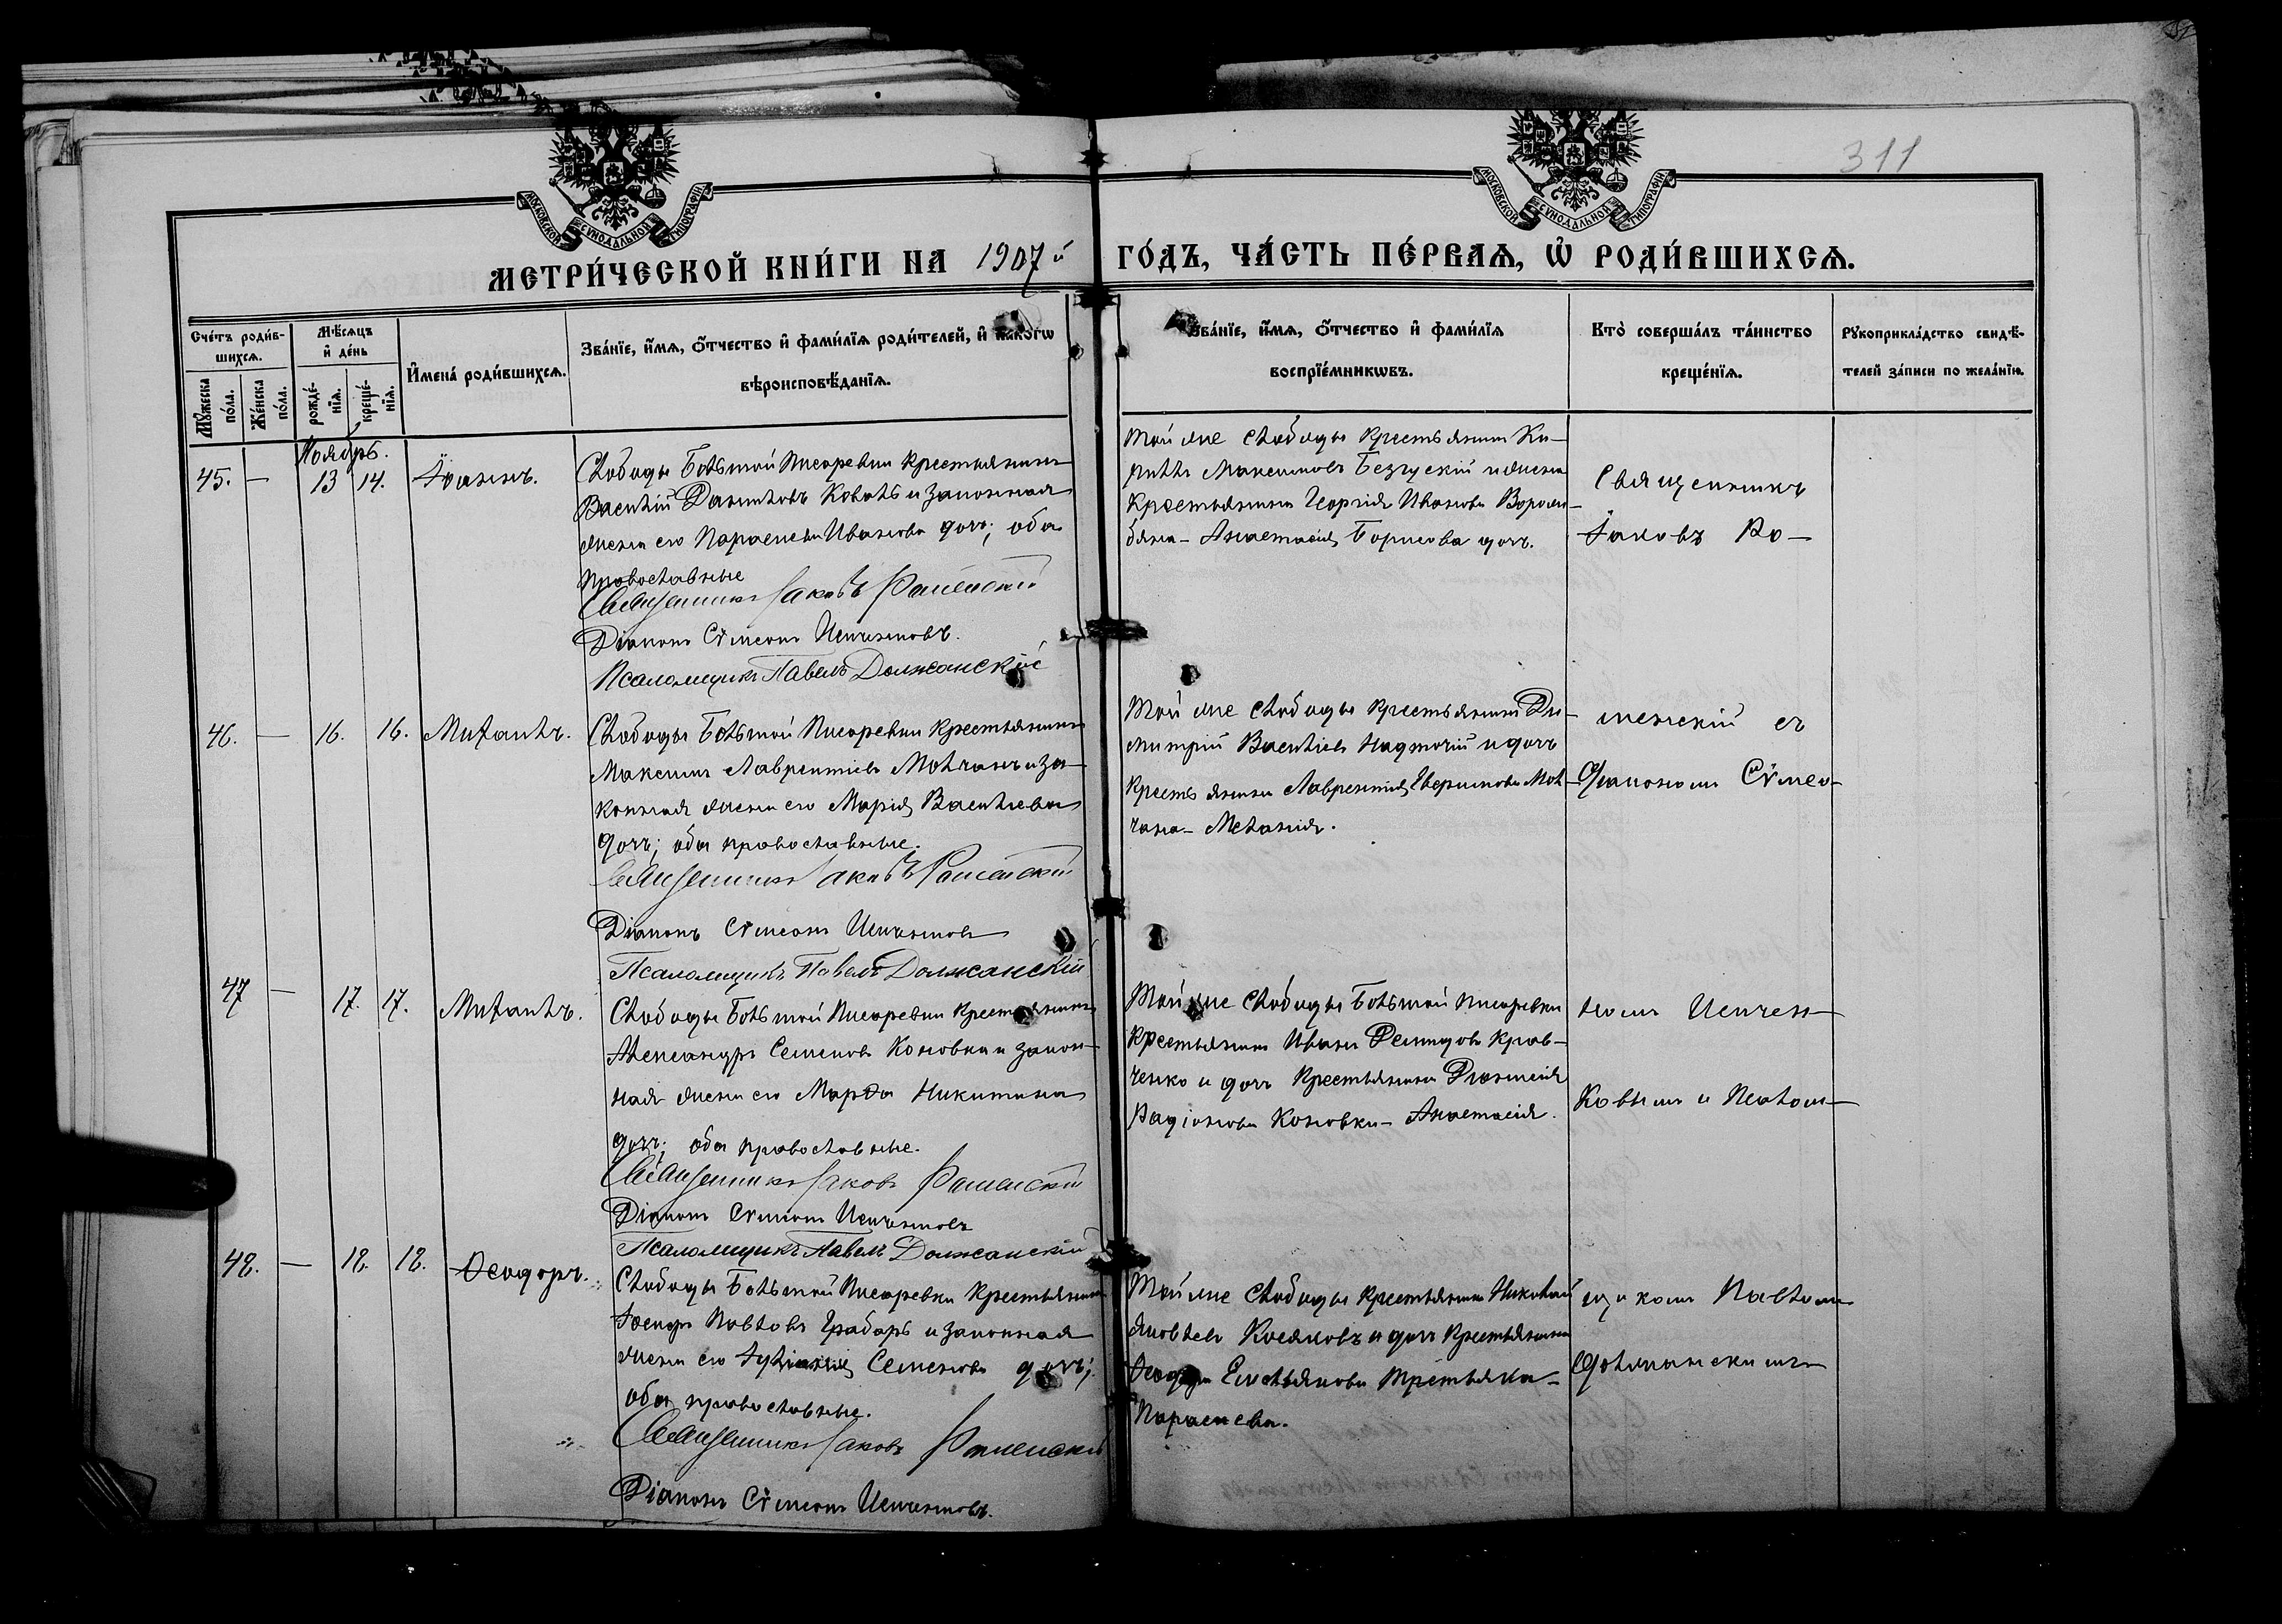 311
МОСКОВСКОЙ СѴНОДАЛЬНОЙ ТИПОГРАФІИ
МОСКОВСКОЙ СѴНОДАЛЬНОЙ ТИПОГРАФІИ
МЕТРИ́ЧЕСКОЙ КНИ́ГИ НА 1907й ГО́ДЪ, ЧА́СТЬ ПЕ́РВАѦ, Ѡ҆ РОДИ́ВШИХСѦ.
Сче́тъ роди́в-
шихсѧ.
Мꙋ́жеска по́ла.
Же́нска по́ла.
Мѣ́сѧцъ
и҆ де́нь
рожде́-
нїѧ.
креще́-
нїѧ.
И҆мена̀ роди́вшихсѧ.
Зва́нїе, и҆́мѧ, ѻ҆́тчество и҆ фами́лїѧ роди́телей, и҆ како́гѡ
вѣроисповѣ́данїѧ.
Зва́нїе, и҆́мѧ, ѻ҆́тчество и҆ фами́лїѧ
воспрїе́мникѡвъ.
Кто̀ соверша́лъ та́инство
креще́нїѧ.
Рꙋкоприкла́дство свидѣ́-
телей за́писи по жела́нїю.
Ноябрь.
45. — 13 14. Іоаннъ.
Слободы Большой Писаревки крестьянинъ
Василій Даниловъ Коваль и законная
жена его Параскева Иванова дочь; оба
православные
Священникъ Іаковъ Раменскій
Діаконъ Сѵмеонъ Исиченковъ.
Псаломщикъ Павелъ Должанскій
Той же слободы крестьянинъ Ки-
риллъ Максимовъ Безускій и жена
крестьянина Георгія Иванова Воро
бьева – Анастасія Борисова дочь.
Священникъ
Іаковъ Ра–
46. — 16. 16. Михаилъ.
Слободы Большой Писаревки крестьянинъ
Максимъ Лаврентіевъ Молчанъ и за-
конная жена его Марія Васильева
дочь; оба православные.
Священникъ Іаковъ Раменскій
Діаконъ Сѵмеонъ Исиченковъ
Псаломщикъ Павелъ Должанскій
Той же слободы крестьянинъ Ди-
митрій Васильевъ Надточій и дочь
крестьянина Лаврентія Аверьянова Мол-
чана – Меланія.
менскій съ
діакономъ Сѵмео-
47 — 17. 17. Михаилъ.
Слободы Большой Писаревки крестьянинъ
Александръ Семеновъ Коновка и закон-
ная жена его Марѳа Никитина
дочь; оба православные.
Священникъ Іаковъ Раменскій
Діаконъ Сѵмеонъ Исиченковъ
Псаломщикъ Павелъ Должанскій
Той же слободы Большой Писаревки
крестьянинъ Иванъ Демидовъ Крав-
ченко и дочь крестьянина Діонисія
Радіонова Коновки – Анастасія.
номъ Исичен–
ковымъ и Псалом–
48. — 18. 18. Ѳеодоръ.
Слободы Большой Писаревки крестьянинъ
Іосифъ Павловъ Грабарь и законная
жена его Іуліанія Семенова дочь;
оба православные.
Священникъ Іаковъ Раменскій
Діаконъ Сѵмеонъ Исиченковъ.
Той же слободы крестьянинъ Николай
Яковлевъ Косяковъ и дочь крестьянина
Ѳеодора Емельянова Третьяка –
Параскева.
щикомъ Павломъ
Должанскимъ